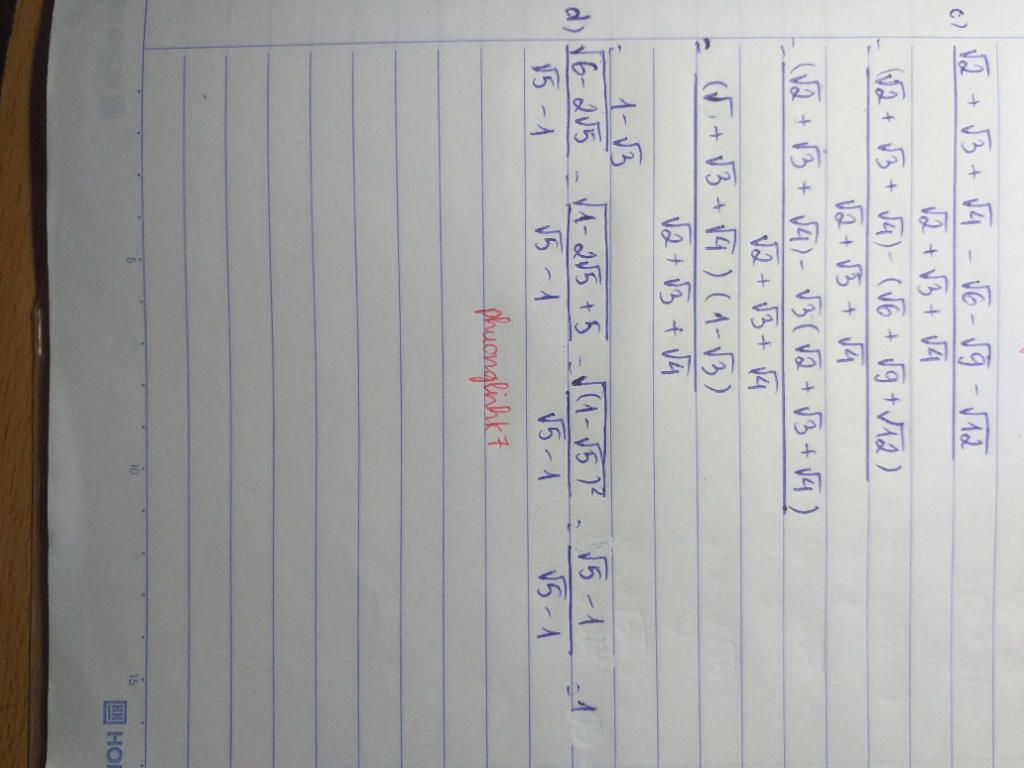 c) √2 + √3 + √4 - √6 - √9 - √12
√2 + √3 + √4
= (√2 + √3 + √4) - (√6 + √9 + √12)
√2 + √3 + √4
= (√2 + √3 + √4) - √3 (√2 + √3 + √4)
√2 + √3 + √4
= (√ + √3 + √4) (1 - √3)
√2 + √3 + √4
= 1 - √3
d) √6 - 2√5 = √1 - 2√5 + 5 = √(1 - √5)² = √5 - 1 = 1
√5 - 1 √5 - 1 √5 - 1 √5 - 1
phuonglinhk7
5 10 15
HO